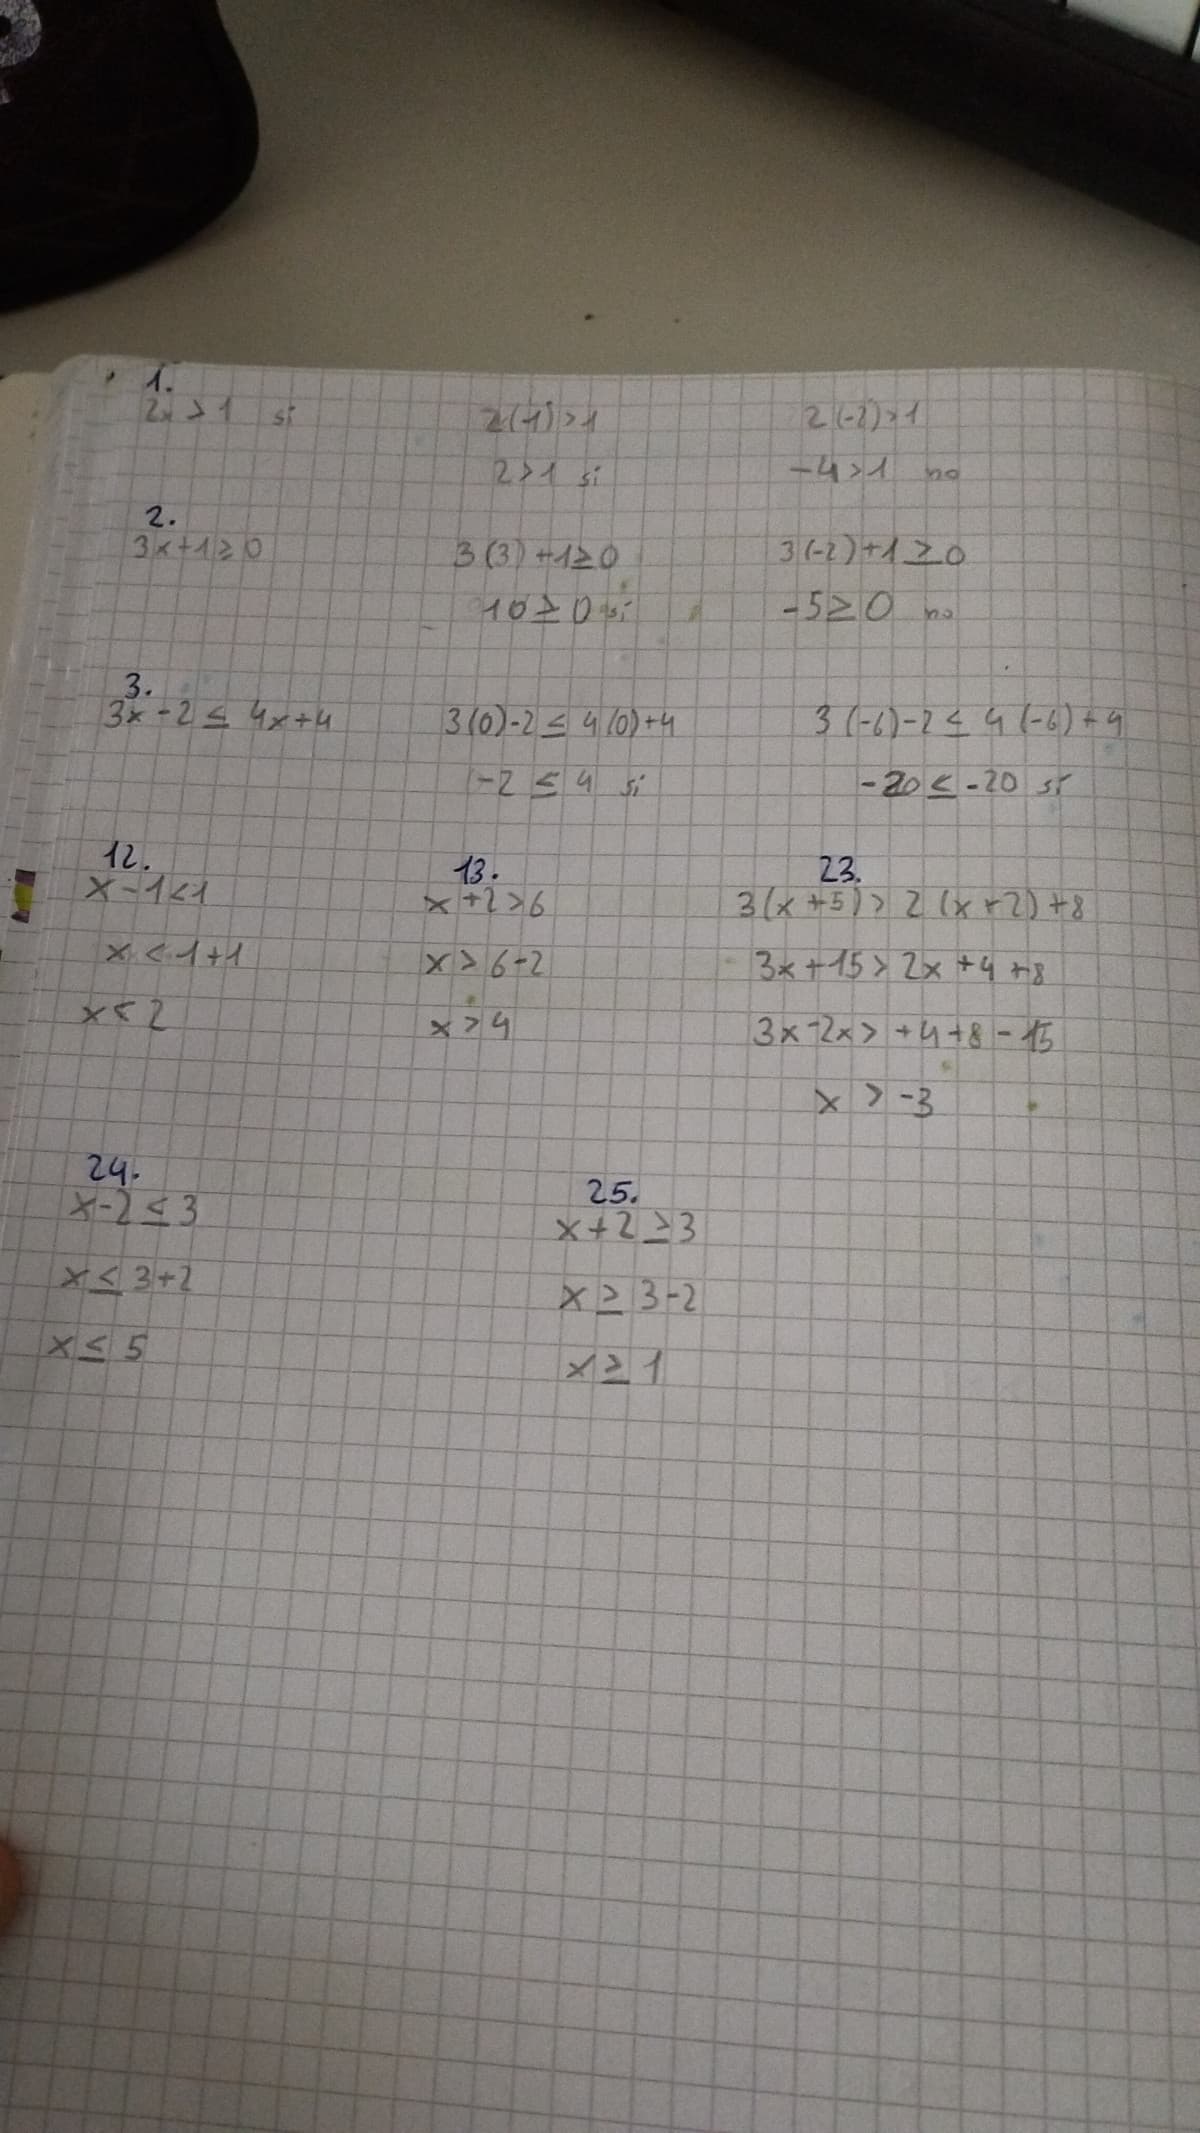 1.
2x > 1 si 2(1) > 1 2(-2) > 1
2 > 1 si -4 > 1 no
2.
3x+1 ≥ 0 3(3)+1 ≥ 0 3(-2)+1 ≥ 0
10 ≥ 0 si -5 ≥ 0 no
3.
3x-2 ≤ 4x+4 3(0)-2 ≤ 4(0)+4 3(-6)-2 ≤ 4(-6)+4
-2 ≤ 4 si -20 ≤ -20 si
12.
x-1<1
x < 1+1
x < 2
13.
x+2 > 6
x > 6-2
x > 4
23.
3(x+5) > 2(x+2)+8
3x+15 > 2x+4+8
3x-2x > +4+8-15
x > -3
24.
x-2 ≤ 3
x ≤ 3+2
x ≤ 5
25.
x+2 ≥ 3
x ≥ 3-2
x ≥ 1